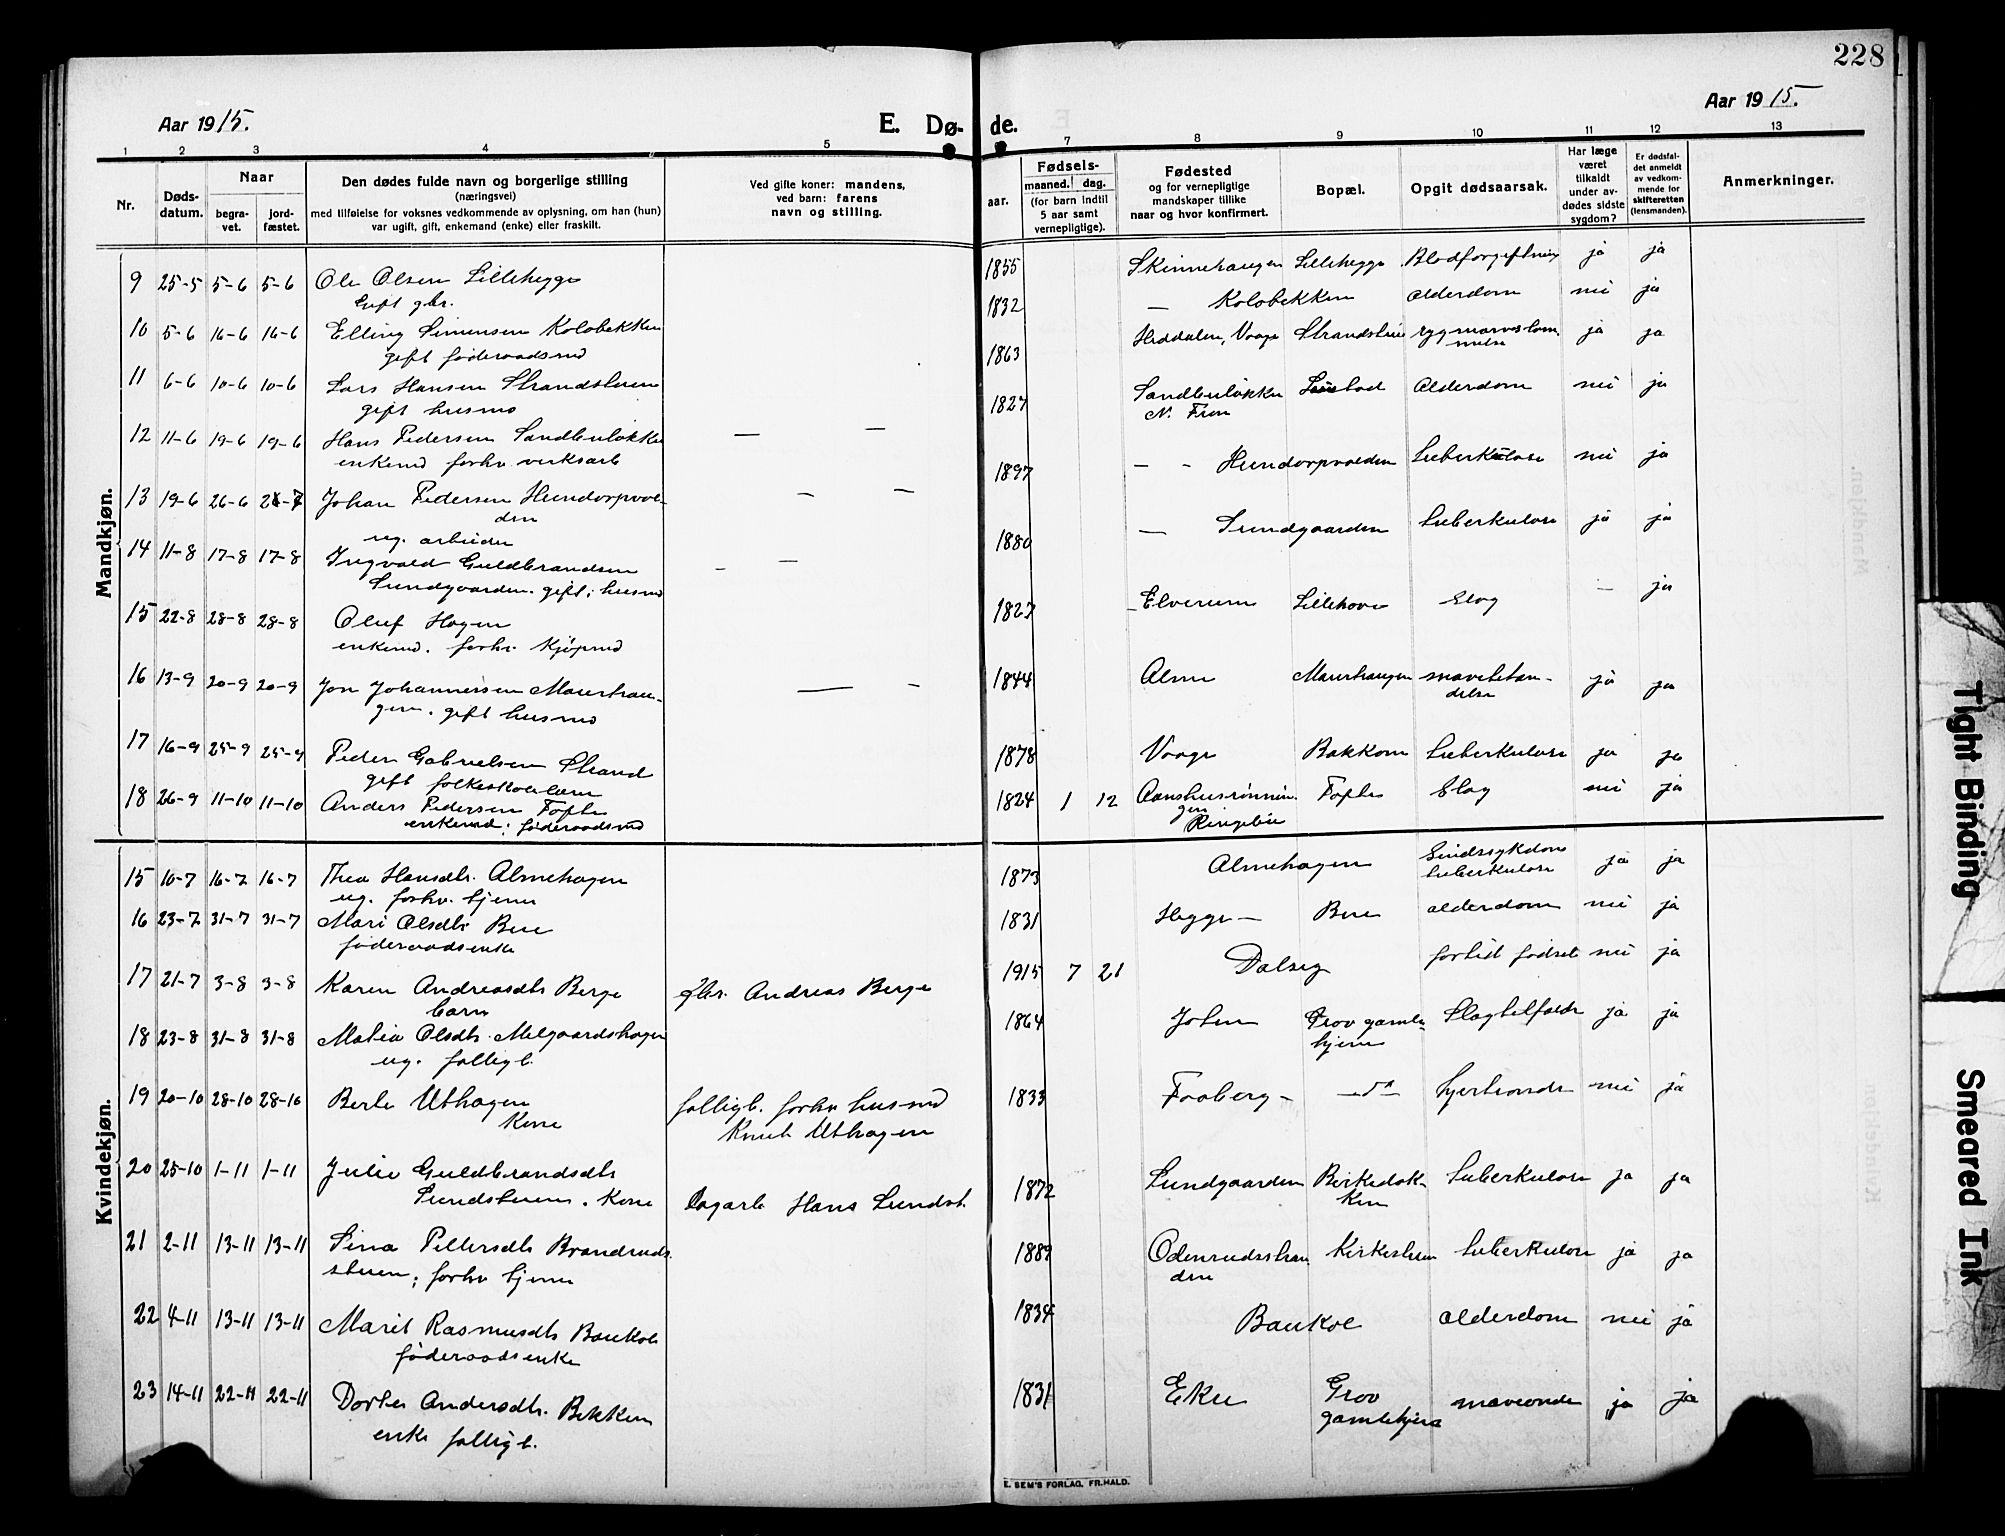 228
Aar 1915.
E. Dø- de.
Aar 1915.
1 2 3 4 5 7 8 9 10 11 12 13
Nr.
Døds-
datum.
Naar
begra-
vet.
jord-
fæstet.
Den dødes fulde navn og borgerlige stilling
(næringsvei)
med tilføielse for voksnes vedkommende av oplysning, om han (hun)
var ugift, gift, enkemand (enke) eller fraskilt.
Ved gifte koner: mandens,
ved barn: farens
navn og stilling.
Fødsels-
aar.
maaned. dag.
(for barn indtil
5 aar samt
vernepligtige).
Fødested
og for vernepligtige
mandskaper tillike
naar og hvor konfirmert.
Bopæl.
Opgit dødsaarsak.
Har læge
været
tilkaldt
under av-
dødes sidste
sygdom?
Er dødsfal-
det anmeldt
av vedkom-
mende for
skifteretten
(lensmanden).
Anmerkninger.
Mandkjøn.
9 25-5 5-6 5-6 Ole Olsen Lillehegge 1855 Skinnehaugen Lillehegge Blodforgiftning ja ja
Gift gbr.
10 5-6 16-6 16-6 Elling Simensen Kolobekken 1832 — Kolobekken Alderdom nei ja
gift føderaadsmd
11 6-6 10-6 10-6 Lars Hansen Strandstuen 1863 Heddalen, Vaage Strandstuen rygmarvsbetæn ja ja
gift husmd
12 11-6 19-6 19-6 Hans Pedersen Sandbuløkken — — 1827 Sandbuløkken Alderdom nei ja
N. Fron
enkemd forhv verksarb
13 19-6 26-6 Johan Pedersen Hundorpvol- — — 1897 — - Hundorpvolden Tuberkulose nei ja
den
ug. arbeider
14 11-8 17-8 17-8 Ingvald Guldbrandsen - — 1880 — Sundgaarden Tuberkulose ja ja
Sundgaarden. gift; husmd
15 22-8 28-8 28-8 Oluf Hagen 1827 Elverum Lillehove Slag — ja
enkemd. forhv. Kjøpmd
16 13-9 20-9 20-9 Jon Johannessen Maurhau- — - 1844 Alme Maurhaugen mavebetæn- ja ja
delse
gen. gift husmd
17 16-9 25-9 25-9 Peder Gabrielsen Strand 1878 Vaage Bakkom Tuberkulose ja ja
gift folkeskolelærer
18 26-9 11-10 11-10 Anders Pedersen Tofte 1824 1 12 Aanshusrønnin- Tofte Slag nei ja
gen
Ringebu
enkemd; føderaadsmd
Kvindekjøn.
15 10-7 16-7 16-7 Thea Hansdtr. Almehagen 1873 Almehagen Sindssykdom ja ja
tuberkulose
ug. forhv. tjener
16 23-7 31-7 31-7 Mari Olsdtr Bue 1831 Hegge — Bue alderdom nei ja
føderaadsenke
17 21-7 3-8 3-8 Karen Andreasdtr Berge gbr. Andreas Berge 1915 7 21 Dalseg fortid fødsel nei ja
barn
18 23-8 31-8 31-8 Matia Olsdtr. Melgaardshagen 1864 Joten Grov gamle- Slagtilfælde ja ja
hjem
ug. fattigl.
19 20-10 28-10 28-10 Berte Uthagen fattigl. forhv husmd 1833 Faaberg - — do — hjerteonde nei ja
Kone Knut Uthagen
20 25-10 1-11 1-11 Julie Guldbrandsdtr 1872 Sundgaarden Birkebak- Tuberkulose ja ja
ken
Sundstuen. Kone Dagarb Hans Sundst.
21 2-11 13-11 13-11 Sina Pettersdtr Brandruds- 1889 Odenrudsstran Kirkestuen Tuberkulose ja ja
den
stuen; forhv tjener
22 4-11 13-11 13-11 Marit Rasmusdtr Baukol 1834 Baukol alderdom nei ja
føderaadsenke
23 14-11 22-11 22-11 Dortea Andersdtr. Bekken 1831 Ekre Grov maveonde ja ja
gamlehjem
enke fattigl.
E. SEM'S FORLAG, FR.HALD.
Tight Binding
Smeared Ink